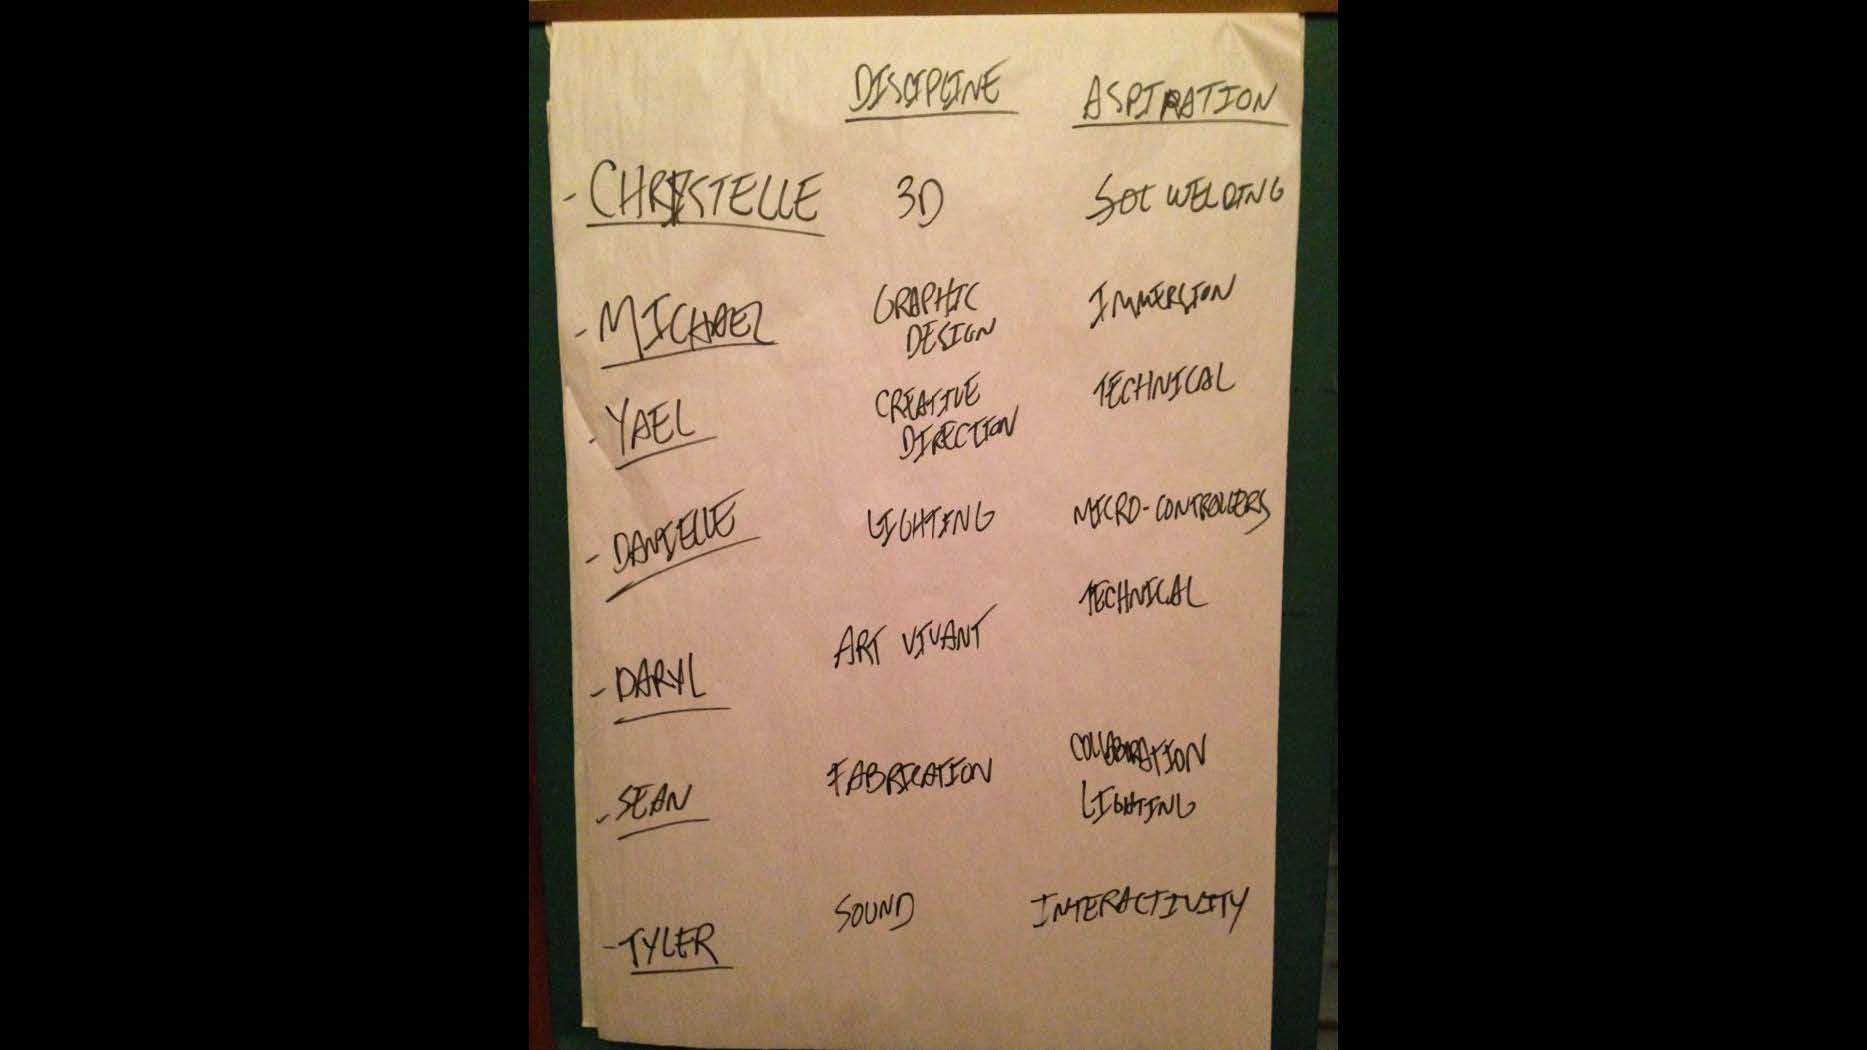 DISCIPLINE ASPIRATION
- CHRISTELLE 3D WELDING
- MICHAEL GRAPHIC DESIGN IMMERSION
- YAEL CREATIVE DIRECTION TECHNICAL
- DANIELLE LIGHTING MICRO-CONTROLLERS
- DARYL ART VIVANT TECHNICAL
- SEAN FABRICATION COLLABORATION LIGHTING
- TYLER SOUND INTERACTIVITY